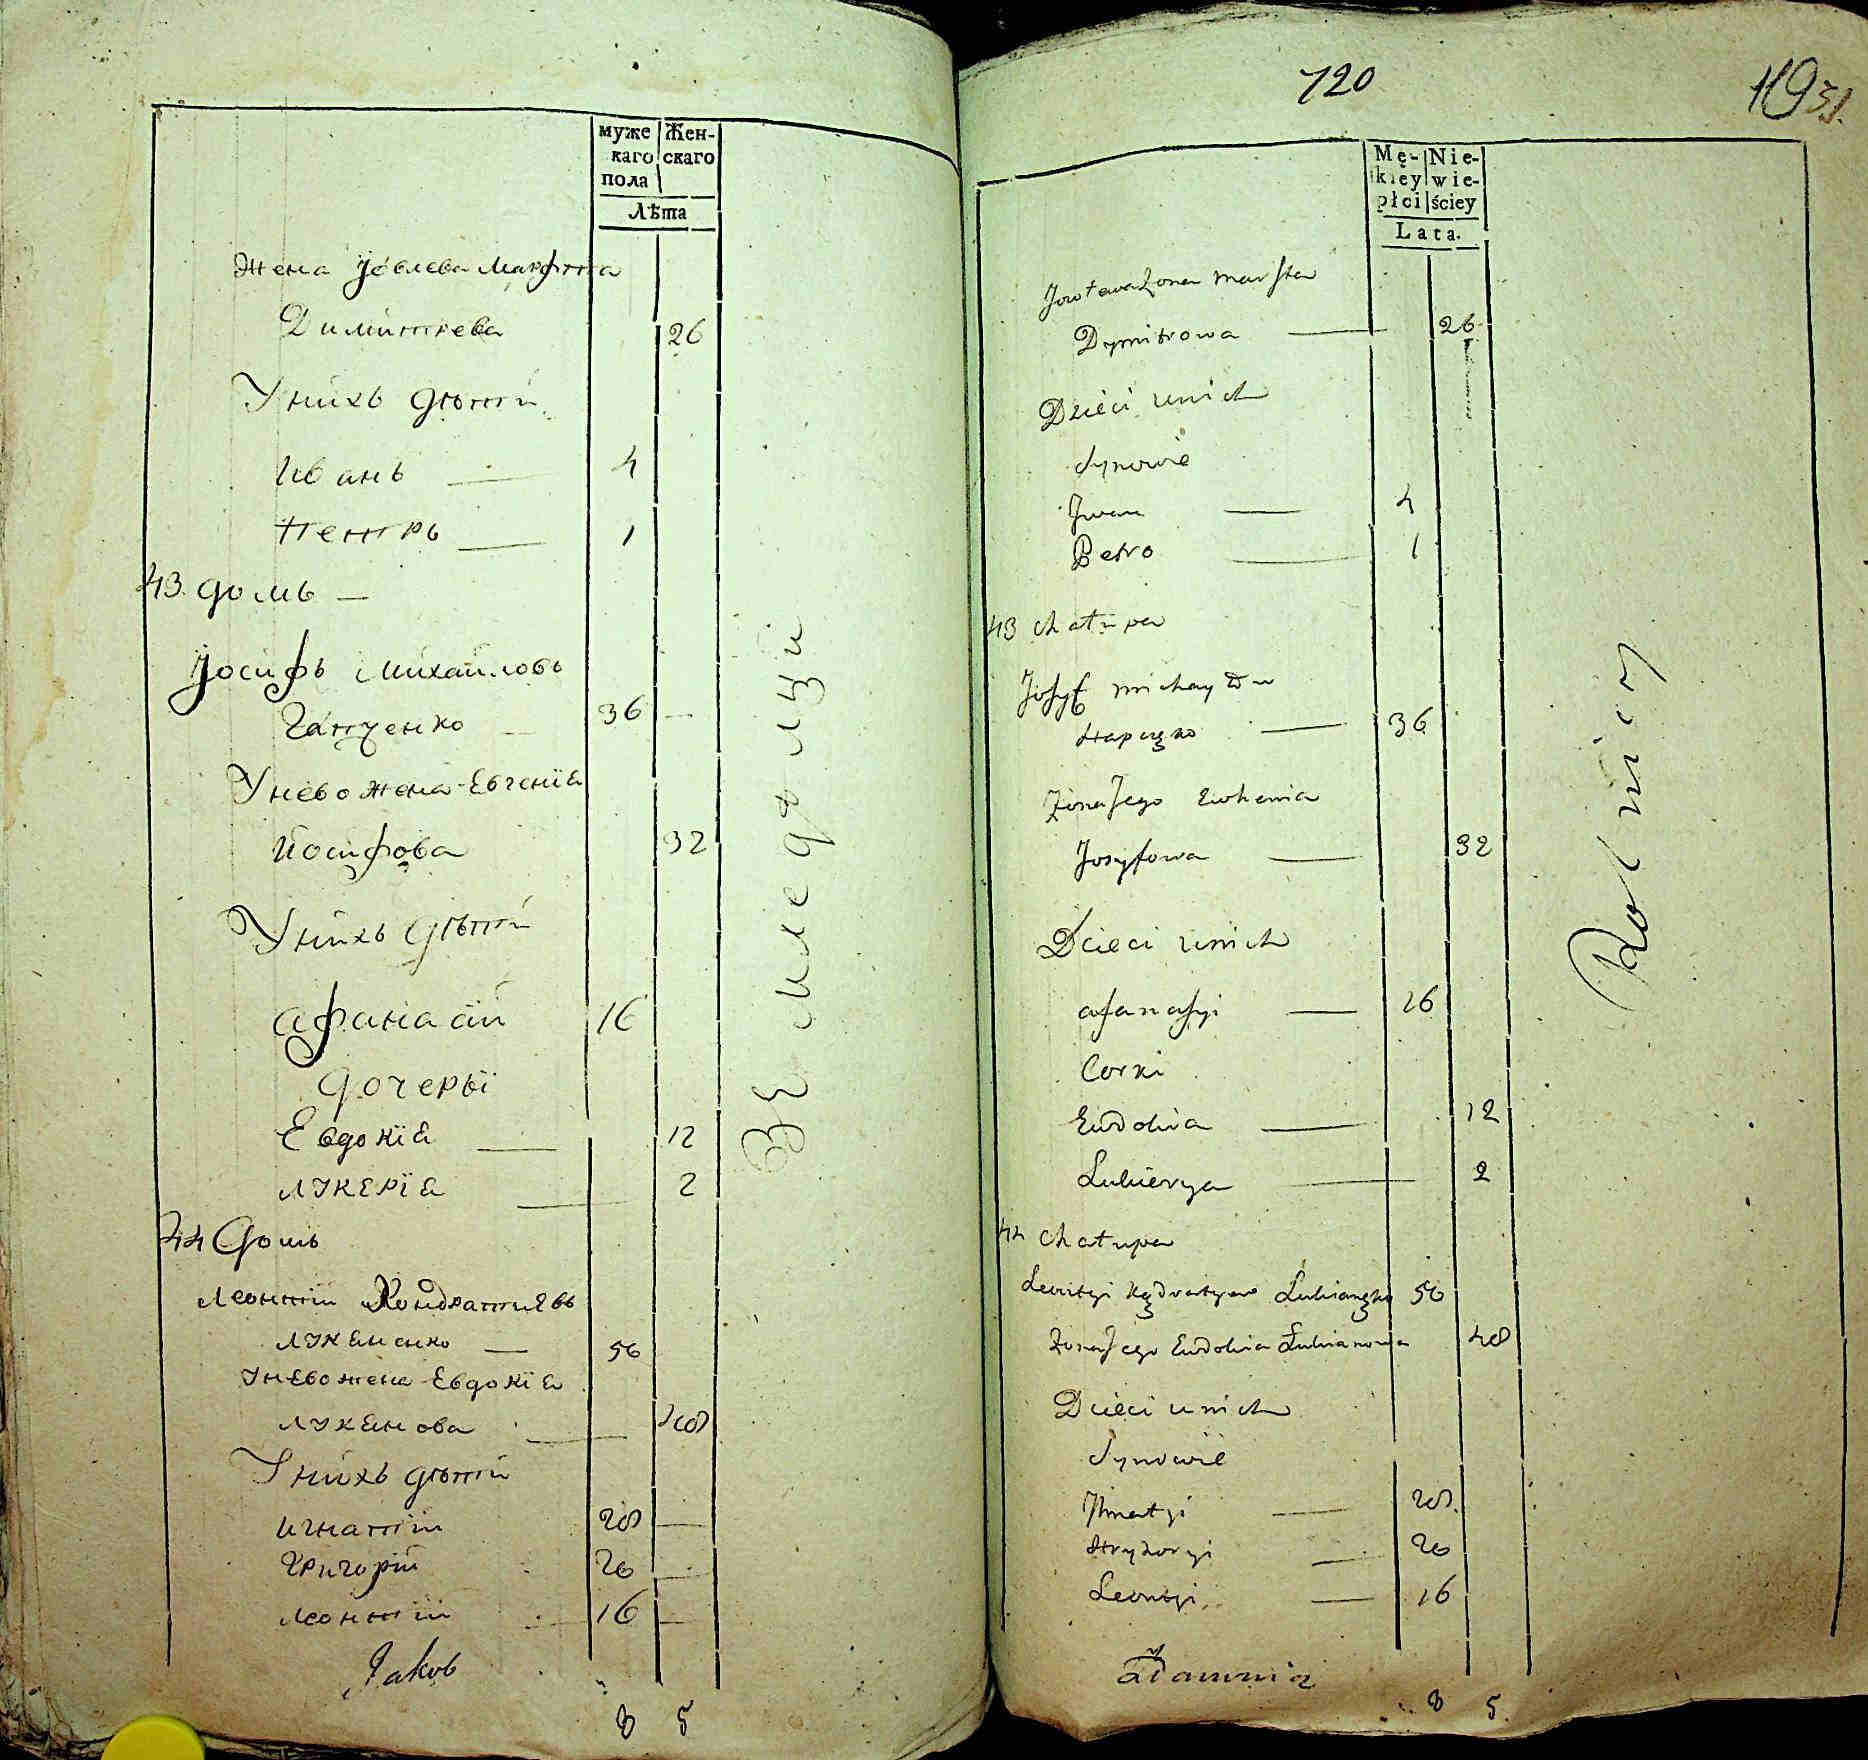 муже
каго
пола
Жен-
скаго
Лѣта
Жена Іовлева Марфа
Димитрева 26
У нихъ дѣти
Иванъ 4
Петръ 1
43. домъ
Іосифъ Михайловъ
Гапченко 36
У него жена Евгенїа
Иосифова 32
У нихъ дѣти
Афанасий 16
дочеры
Евдокїа 12
Лукерїа 2
44 домъ
Леонтїй Кондратиевъ
Лукьяненко 50
У него жена Евдокїа
Лукьянова 48
У нихъ дѣти
Игнатїй 28
Григорїй 20
Леонтїй 16
Jakob
8 5
Земледѣлци
720
119
31.
Mę-
kiey
płci
Nie-
wie-
ściey
Lata.
Jowlewa Żona Marfta
Dymitrowa 26
Dzieci unich
Synowie
Jwan 4
Petro 1
43 Chatupa
Josyf Michayłow
36
Żona Jego Ewhenia
Josyfowa 32
Dzieci unich
Afanasyi 16
Corki
Eudokia 12
Lukierya 2
44 Chatupa
Leontyi Kądratyew Lukianęko 50
Żona Jego Eudokia Łukianowa 48
Dzieci unich
Synowie
Jhnatyi 28
Hryhoryi 20
Leontyi 16
8 5
Rolnicy